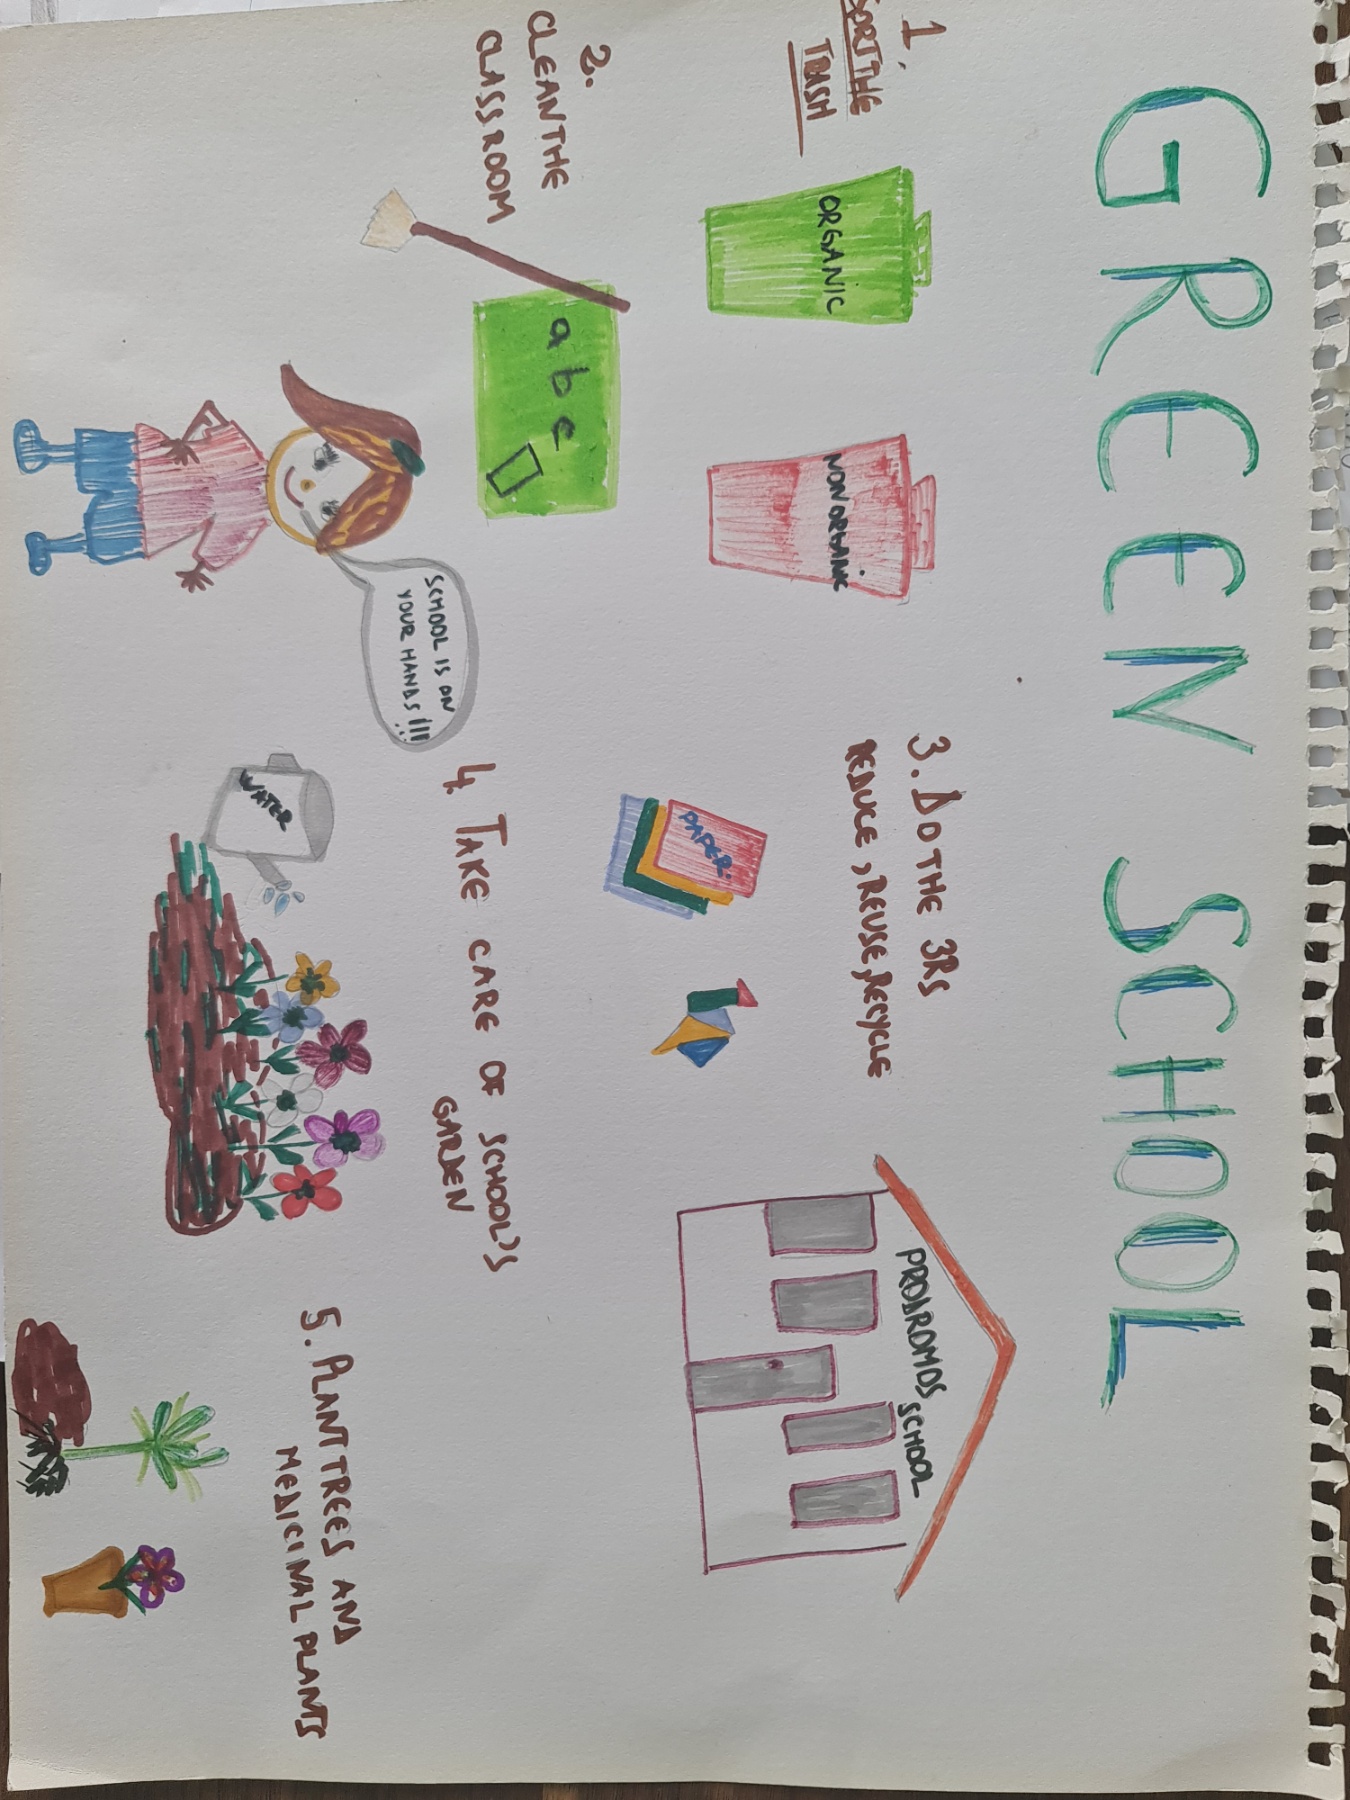 GREEN SCHOOL
1.
SORT THE
TRASH
ORGANIC
NON ORGANIC
2.
CLEAN THE
CLASSROOM
a b c
SCHOOL IS ON
YOUR HANDS!!!
3. DO THE 3RS
REDUCE, REUSE, RECYCLE
PAPER.
PRODROMOS SCHOOL
4. TAKE CARE OF SCHOOL'S
GARDEN
WATER
5. PLANT TREES AND
MEDICINAL PLANTS